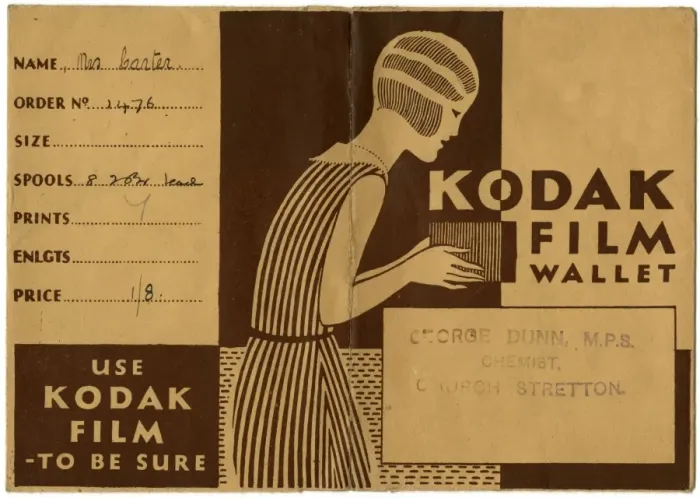 NAME Mrs Carter
ORDER Nº 1476
SIZE
SPOOLS 8
PRINTS
ENLGTS.
PRICE 1/8.
USE
KODAK
FILM
-TO BE SURE
KODAK
FILM
WALLET
GEORGE DUNN, M.P.S.
CHEMIST,
CHURCH STRETTON.